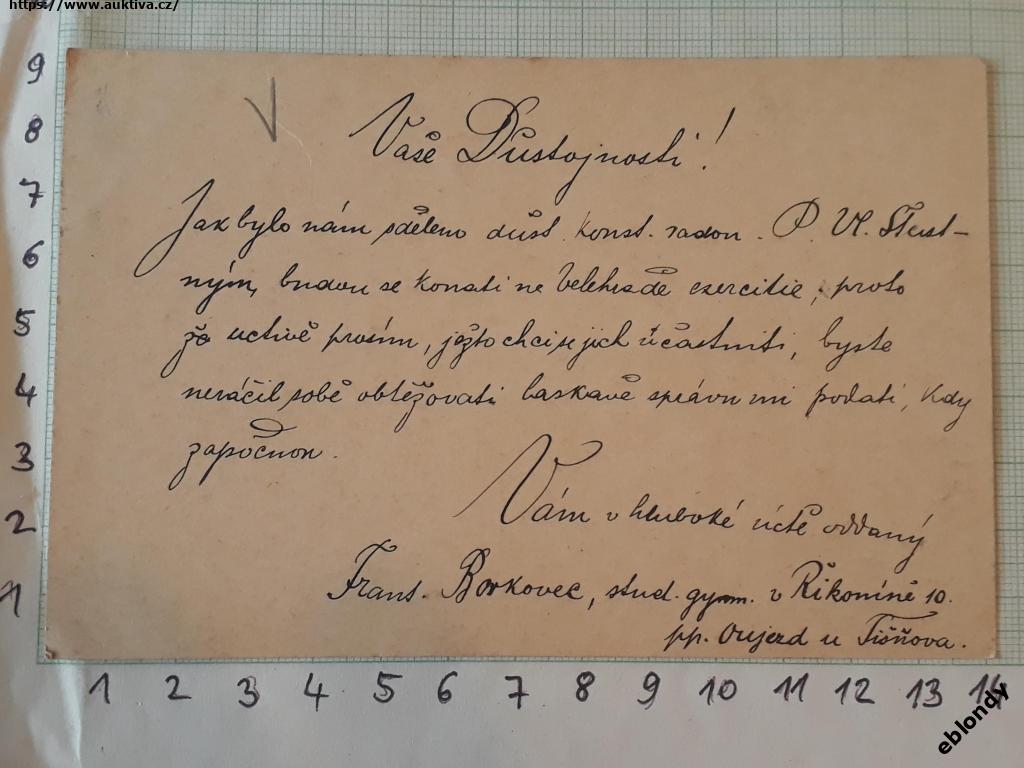 https://www.auktiva.cz/
Vaše Důstojnosti!
Jak bylo nám sděleno důst. konst. radou. P. Vl. Šťast-
ným, budou se konati na Velehradě exercitie; proto
že uctivě prosím, ježto chci se jich účastniti, byste
neráčil sobě obtěžovati laskavě správu mi podati, kdy
započnou.
Vám v hluboké úctě oddaný
Frant. Borkovec, stud. gymn. v Řikoníně 10.
pp. Oujezd u Tišňova.
9
8
7
6
5
4
3
2
1
1 2 3 4 5 6 7 8 9 10 11 12 13 14
eblondy